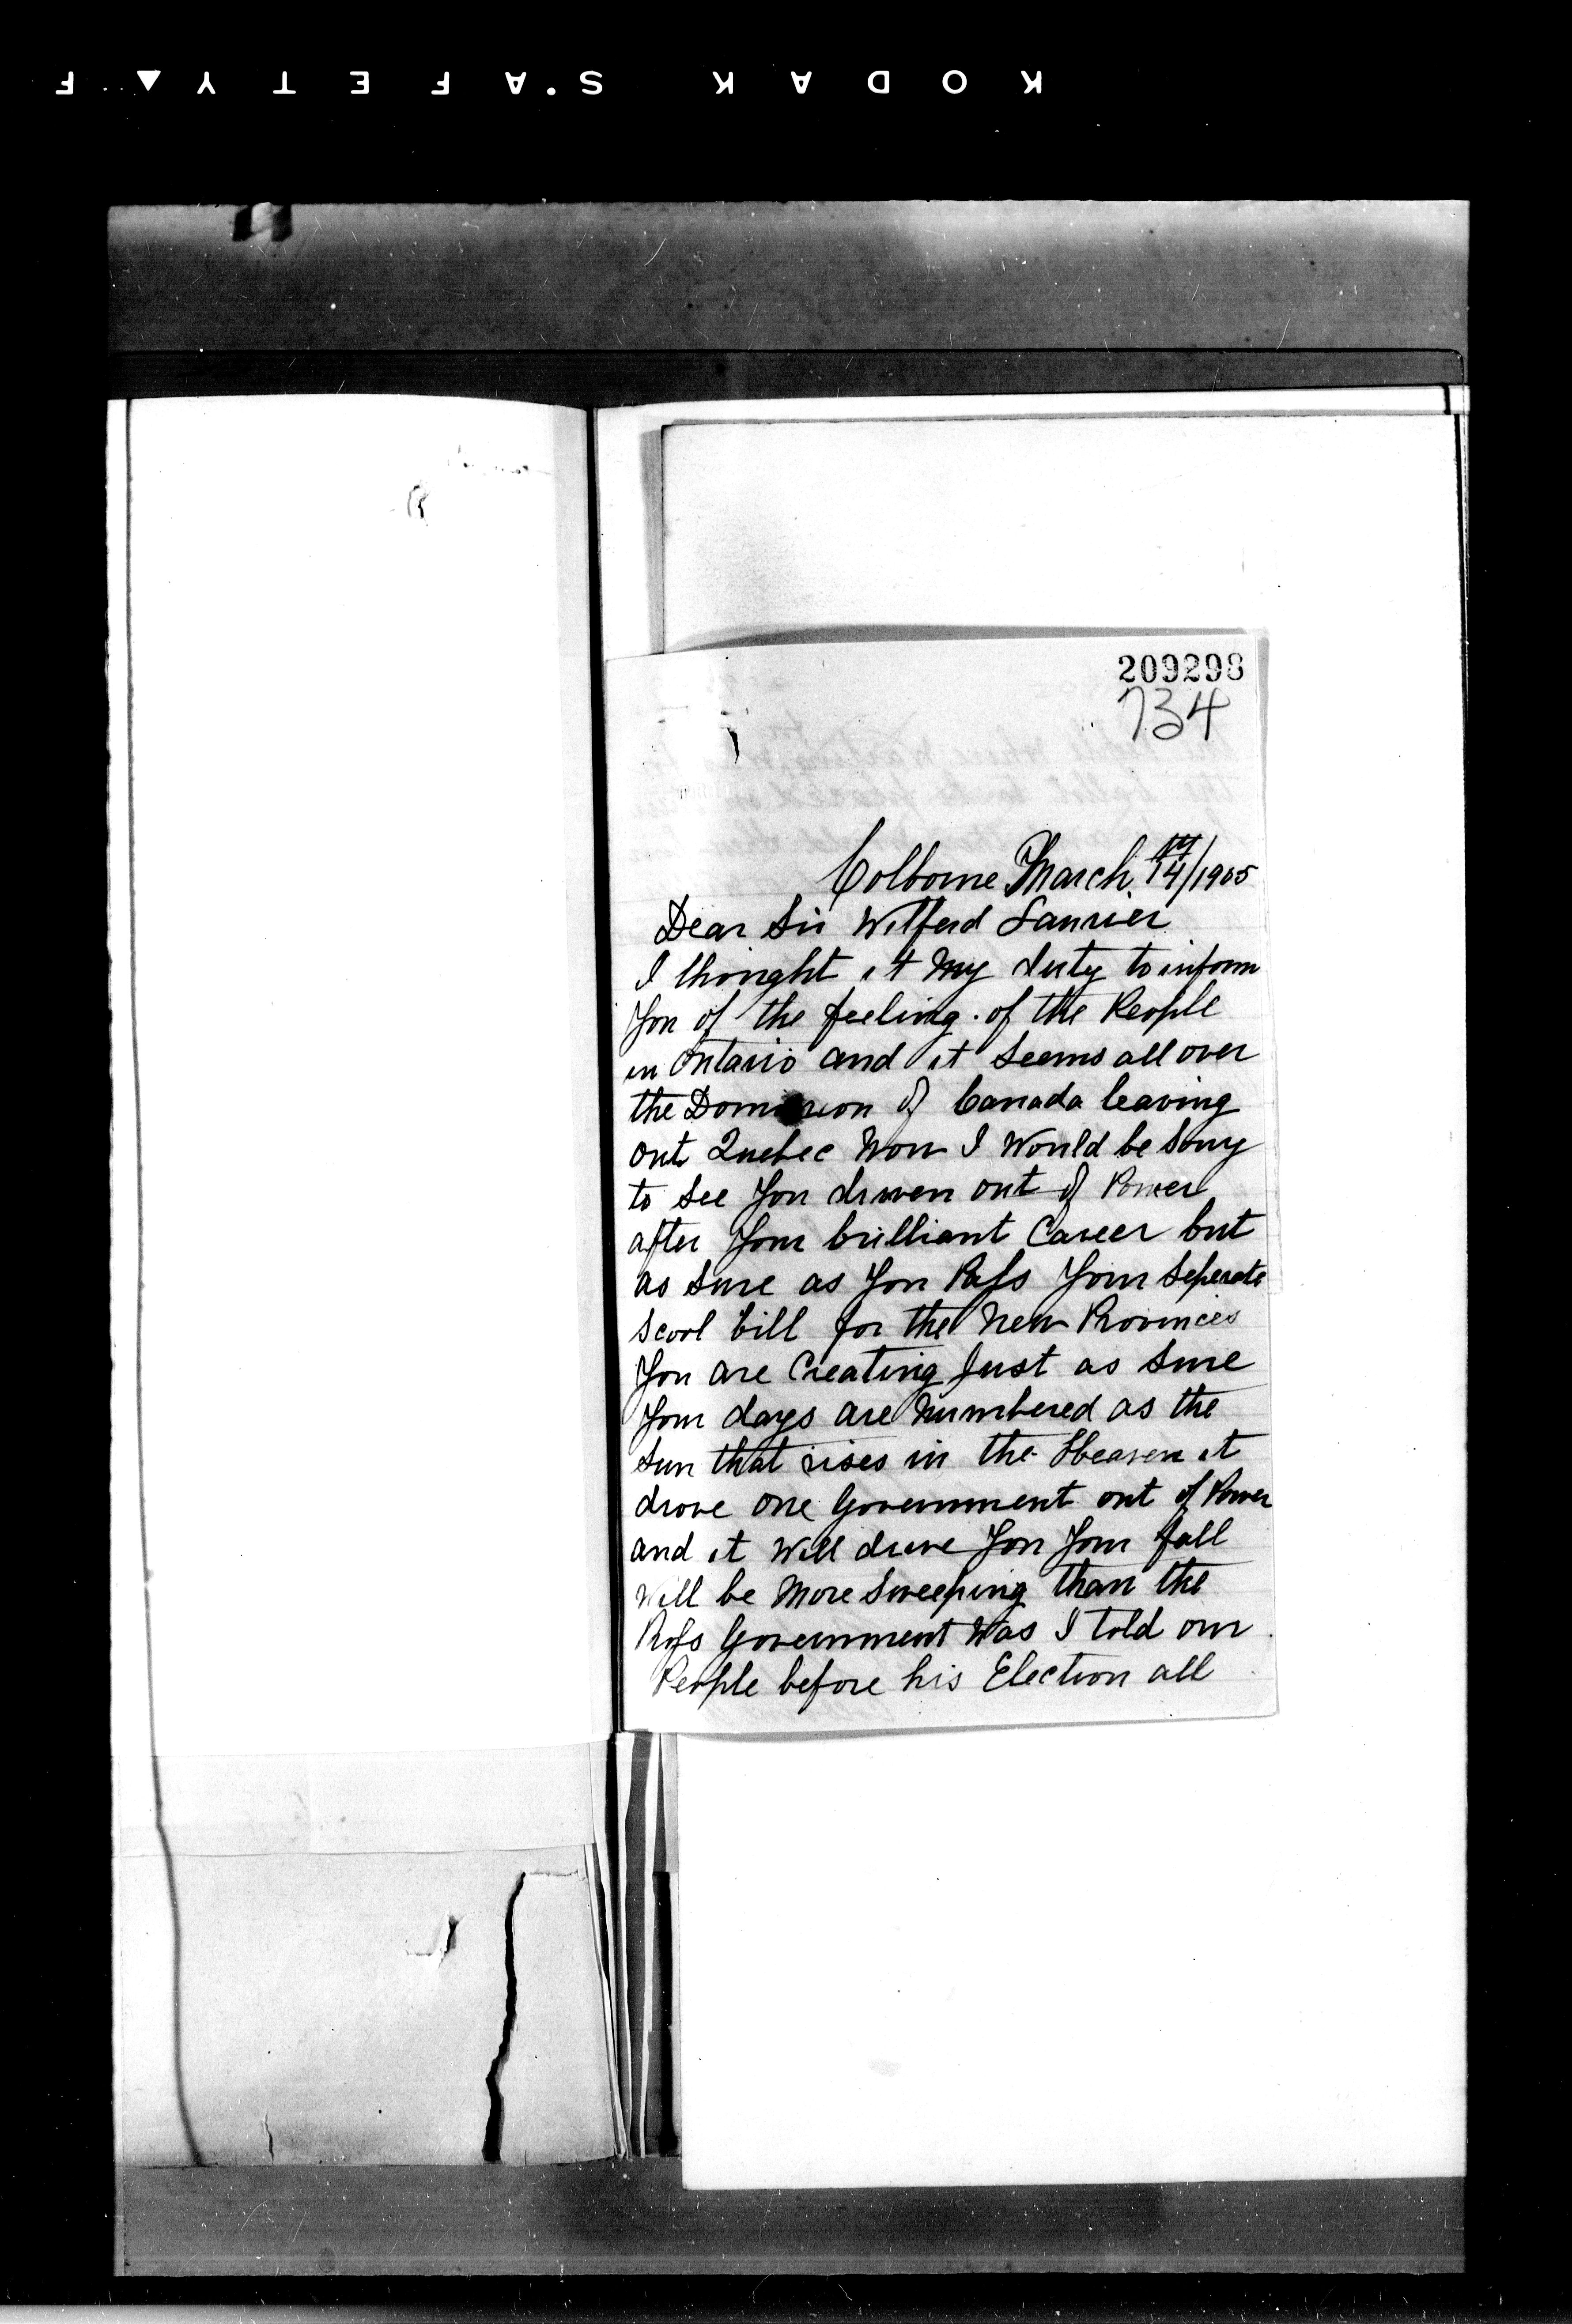 KODAK SAFETY F
209298
734
Colborne March 14th/1905
Dear Sir Wilferd Laurier
I thought it My duty to inform
You of the feeling of the People
in Ontario and it Seems all over
the Dominion of Canada leaving
out Quebec Now I Would be Sorry
to See You driven out of Power
after Your brilliant Career but
as Sure as You Pass Your Seperate
Scool bill for the New Provinces
You are Creating Just as Sure
Your days are Numbered as the
Sun that rises in the Heaven it
drove one Government out of Power
and it Will drive You Your fall
Will be More Sweeping than the
Ross Government Was I told our
People before his Election all